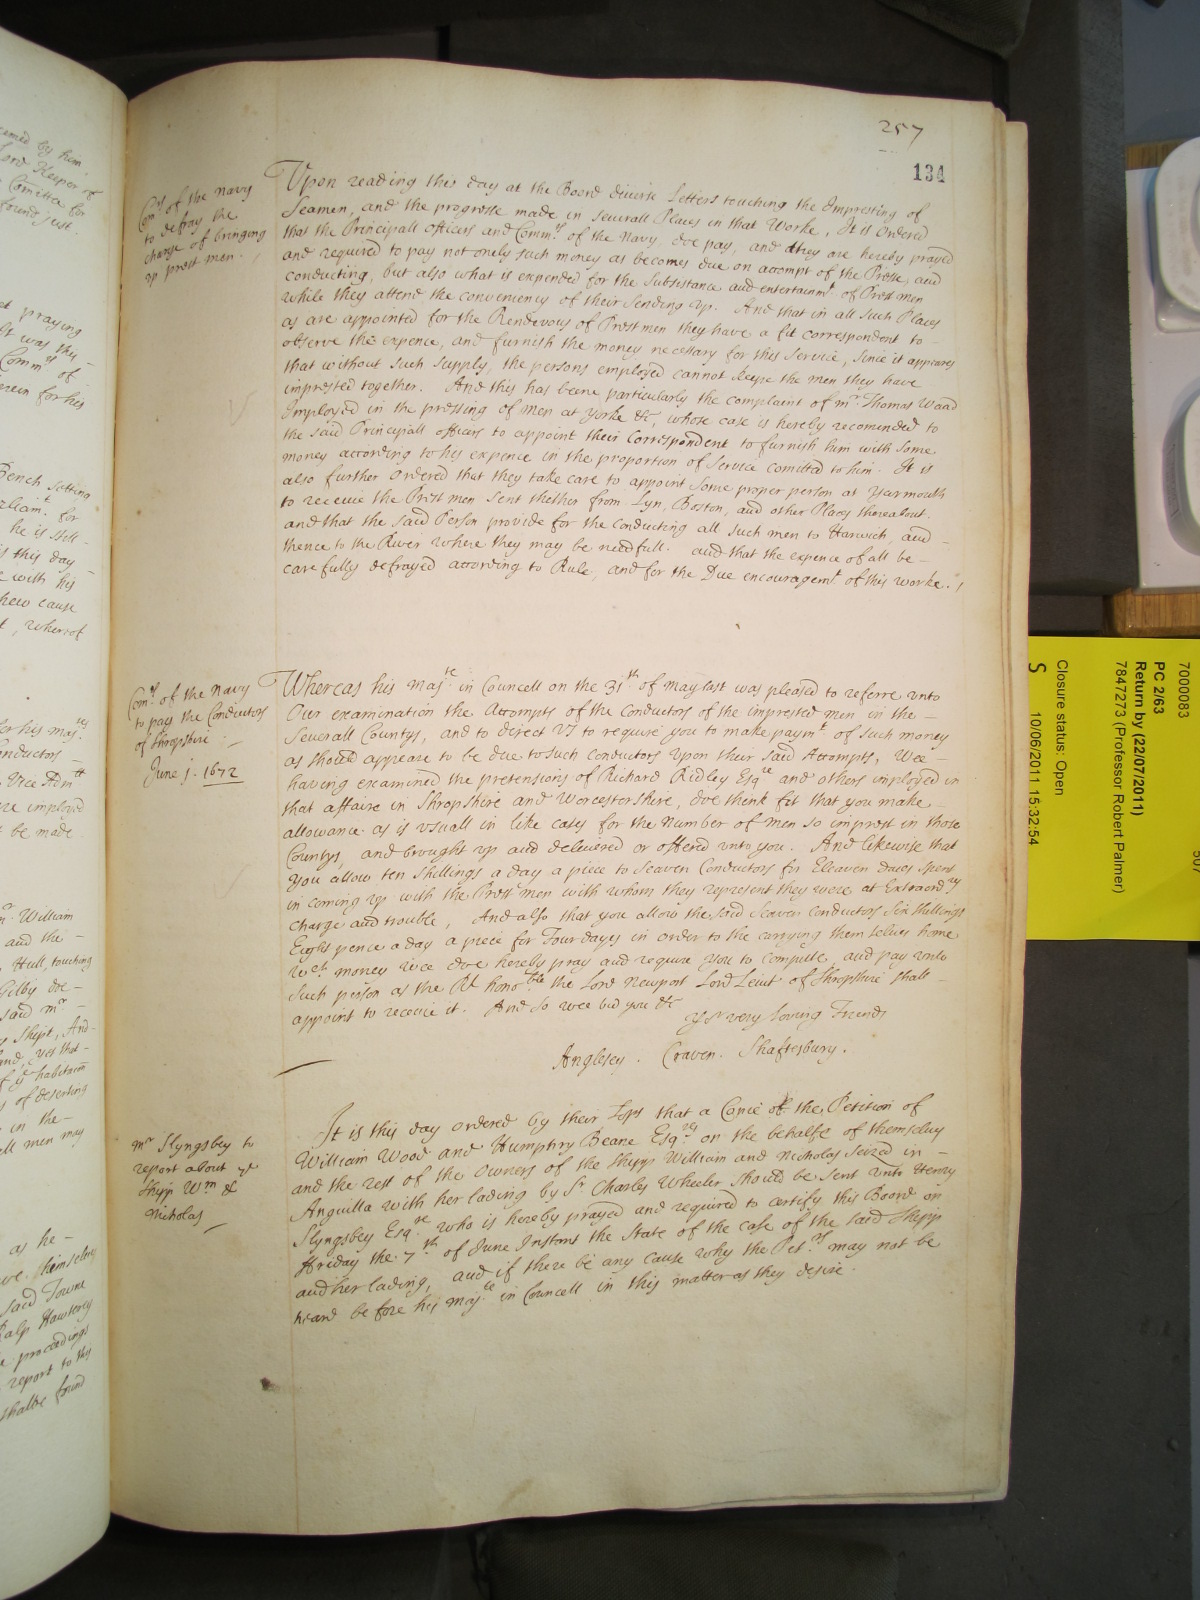 257
134
Com^rs of the Navy
to defray the
charge of bringing
up prest men.
Upon reading this day at the Board diverse Letters touching the Impresting of
Seamen, and the progresse made in severall Places in that Worke, It is Ordered
that the Principall officers and Comm^rs of the Navy, doe pay, and they are hereby prayed
and required to pay not only such money as becomes due on accompt of the Presse, and
conducting, but also what is expended for the Subsistance and entertainm^t of Prest men
while they attend the conveniency of their sending up. And that in all such Places
as are appointed for the Rendevous of Prest men they have a fit correspondent to -
observe the expence, and furnish the money necessary for this Service, since it appeares
that without such supply, the persons employed cannot keepe the men they have
imprested together. And this has beene particularly the complaint of m^r Thomas Waad
Employed in the pressing of men at Yorke &c, whose case is hereby recomended to
the said Principall officers to appoint their Correspondent to furnish him with some
money according to his expence in the proportion of Service comitted to him. It is
also further Ordered that they take care to appoint some proper person at Yarmouth
to receive the Prest men sent thether from Lyn, Boston, and other Places thereabout.
and that the said Person provide for the conducting all such men to Harwich, and -
thence to the River where they may be needfull. and that the expence of all be -
carefully defrayed according to Rule, and for the Due encouragem^t of this worke.
Com^rs of the Navy
to pay the Conductors
of Shropshire
June 1. 1672
Whereas his Maj^te in Councell on the 31^th of May last was pleased to referre unto
Our examination the Accompts of the Conductors of the imprested men in the -
Severall Countys, and to direct Us to require you to make paym^t of such money
as should appeare to be due to such conductors upon their said Accompts, Wee -
having examined the pretensions of Richard Ridley Esq^re and others imployed in
that affaire in Shropshire and Worcestershire, doe think fit that you make -
allowance as is usuall in like cases for the number of men so imprest in those
Countys, and brought up and delivered or offered unto you. And likewise that
You allow ten shillings a day a piece to Seaven Conductors for Eleaven dayes spent
in coming up with the Prest men with whom they represent they were at Extraord^ry
charge and trouble, And also that you allow the said Seaven Conductors Six shillings
Eight pence a day a piece for Four dayes in order to the carrying themselves home
w^ch money wee doe hereby pray and require you to compute, and pay unto
such person as the R^t hono^ble the Lord Newport Lord Lieut of Shropshire shall -
appoint to receive it. And so wee bid you &c
Yo^r very loving Friends
Anglesey. Craven. Shaftesbury.
m^r Slyngsbey to
report about y^e
Shipp W^m &
Nicholas
It is this day ordered by their Lo^ps that a Copie of the Petition of
William Wood and Humphry Beane Esq^rs on the behalfe of themselves
and the rest of the Owners of the Shipp William and Nicholas seized in -
Anguilla with her lading by S^r Charles Wheeler should be sent unto Henry
Slyngsbey Esq^re who is hereby prayed and required to certify this Board on
ffriday the 7^th of June Instant the State of the case of the said Shipp
and her lading, and if there be any cause why the Pet^rs may not be
heard before his Maj^te in Councell in this matter as they desire.
ord Keeper of
Comittee for
found just.
et praying
It was this -
Comm^rs of
Bench sitting
he is still -
is this day -
with his
shew cause
, whereof
for his maj^tys
onductors -
Vice Adm^ll
imployed
be made.
William
and the -
Hull, touching
Gilby doe -
said m^r
Shipt, And-
of deserting
in the -
men may
as he -
themselves
said Towne
proceedings
report to this
shalbe found
7000083
PC 2/63
Return by (22/07/2011)
7847273 (Professor Robert Palmer)
Closure status: Open
S 10/06/2011 15:32:54